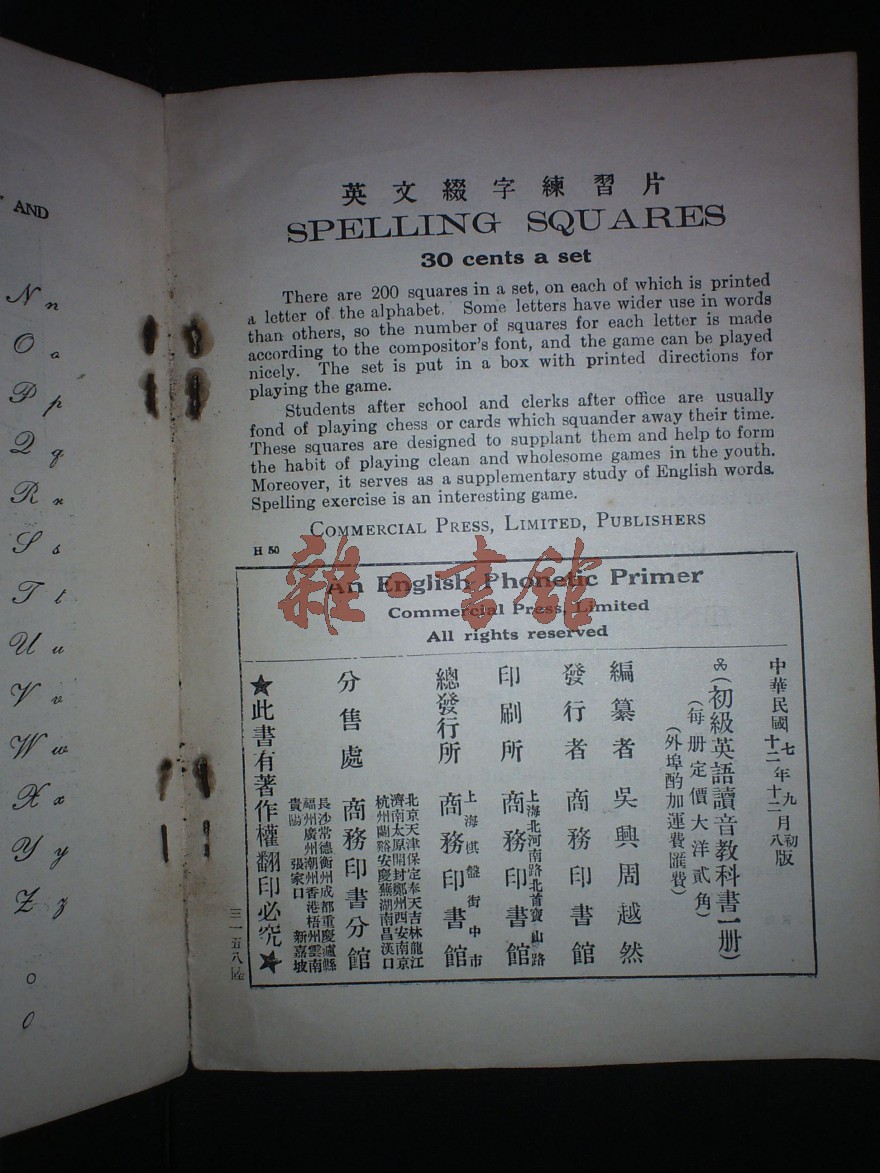 AND
N n
O o
P p
Q q
R r
S s
T t
U u
V v
W w
X x
Y y
Z z
英文綴字練習片
SPELLING SQUARES
30 cents a set
There are 200 squares in a set, on each of which is printed
a letter of the alphabet. Some letters have wider use in words
than others, so the number of squares for each letter is made
according to the compositor's font, and the game can be played
nicely. The set is put in a box with printed directions for
playing the game.
Students after school and clerks after office are usually
fond of playing chess or cards which squander away their time.
These squares are designed to supplant them and help to form
the habit of playing clean and wholesome games in the youth.
Moreover, it serves as a supplementary study of English words.
Spelling exercise is an interesting game.
COMMERCIAL PRESS, LIMITED, PUBLISHERS
H 50
雜·書館
An English Phonetic Primer
Commercial Press, Limited
All rights reserved
中華民國七年九月初版
十二年十二月八版
(初級英語讀音教科書一册)
(每册定價大洋貳角)
(外埠酌加運費匯費)
編纂者 吳興周越然
發行者 商務印書館
印刷所 上海北河南路北首寶山路 商務印書館
總發行所 上海棋盤街中市 商務印書館
分售處 商務印書分館
北京天津保定奉天吉林龍江
濟南太原開封鄭州西安南京
杭州蘭谿安慶蕪湖南昌漢口
長沙常德衡州成都重慶瀘縣
福州廣州潮州香港梧州雲南
貴陽 張家口 新嘉坡
★此書有著作權翻印必究★
三一五八陸